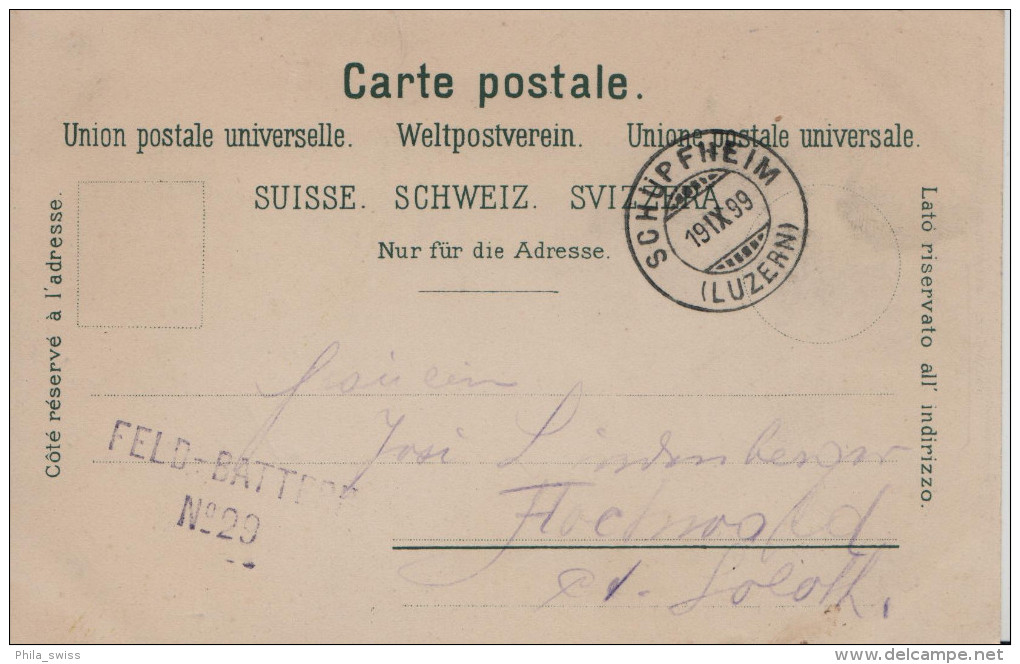 Carte postale.
Union postale universelle. Weltpostverein. Unione postale universale.
SUISSE. SCHWEIZ. SVIZZERA.
Nur für die Adresse.
Côté réservé à l'adresse.
Lato riservato all' indirizzo.
SCHÜPFHEIM
19 IX 99
(LUZERN)
FELD-BATTERIE
No 29
Fräulein
Josi Lindenberger
Hochwald
Ct. Soloth.
Phila_swiss
delcampe.net